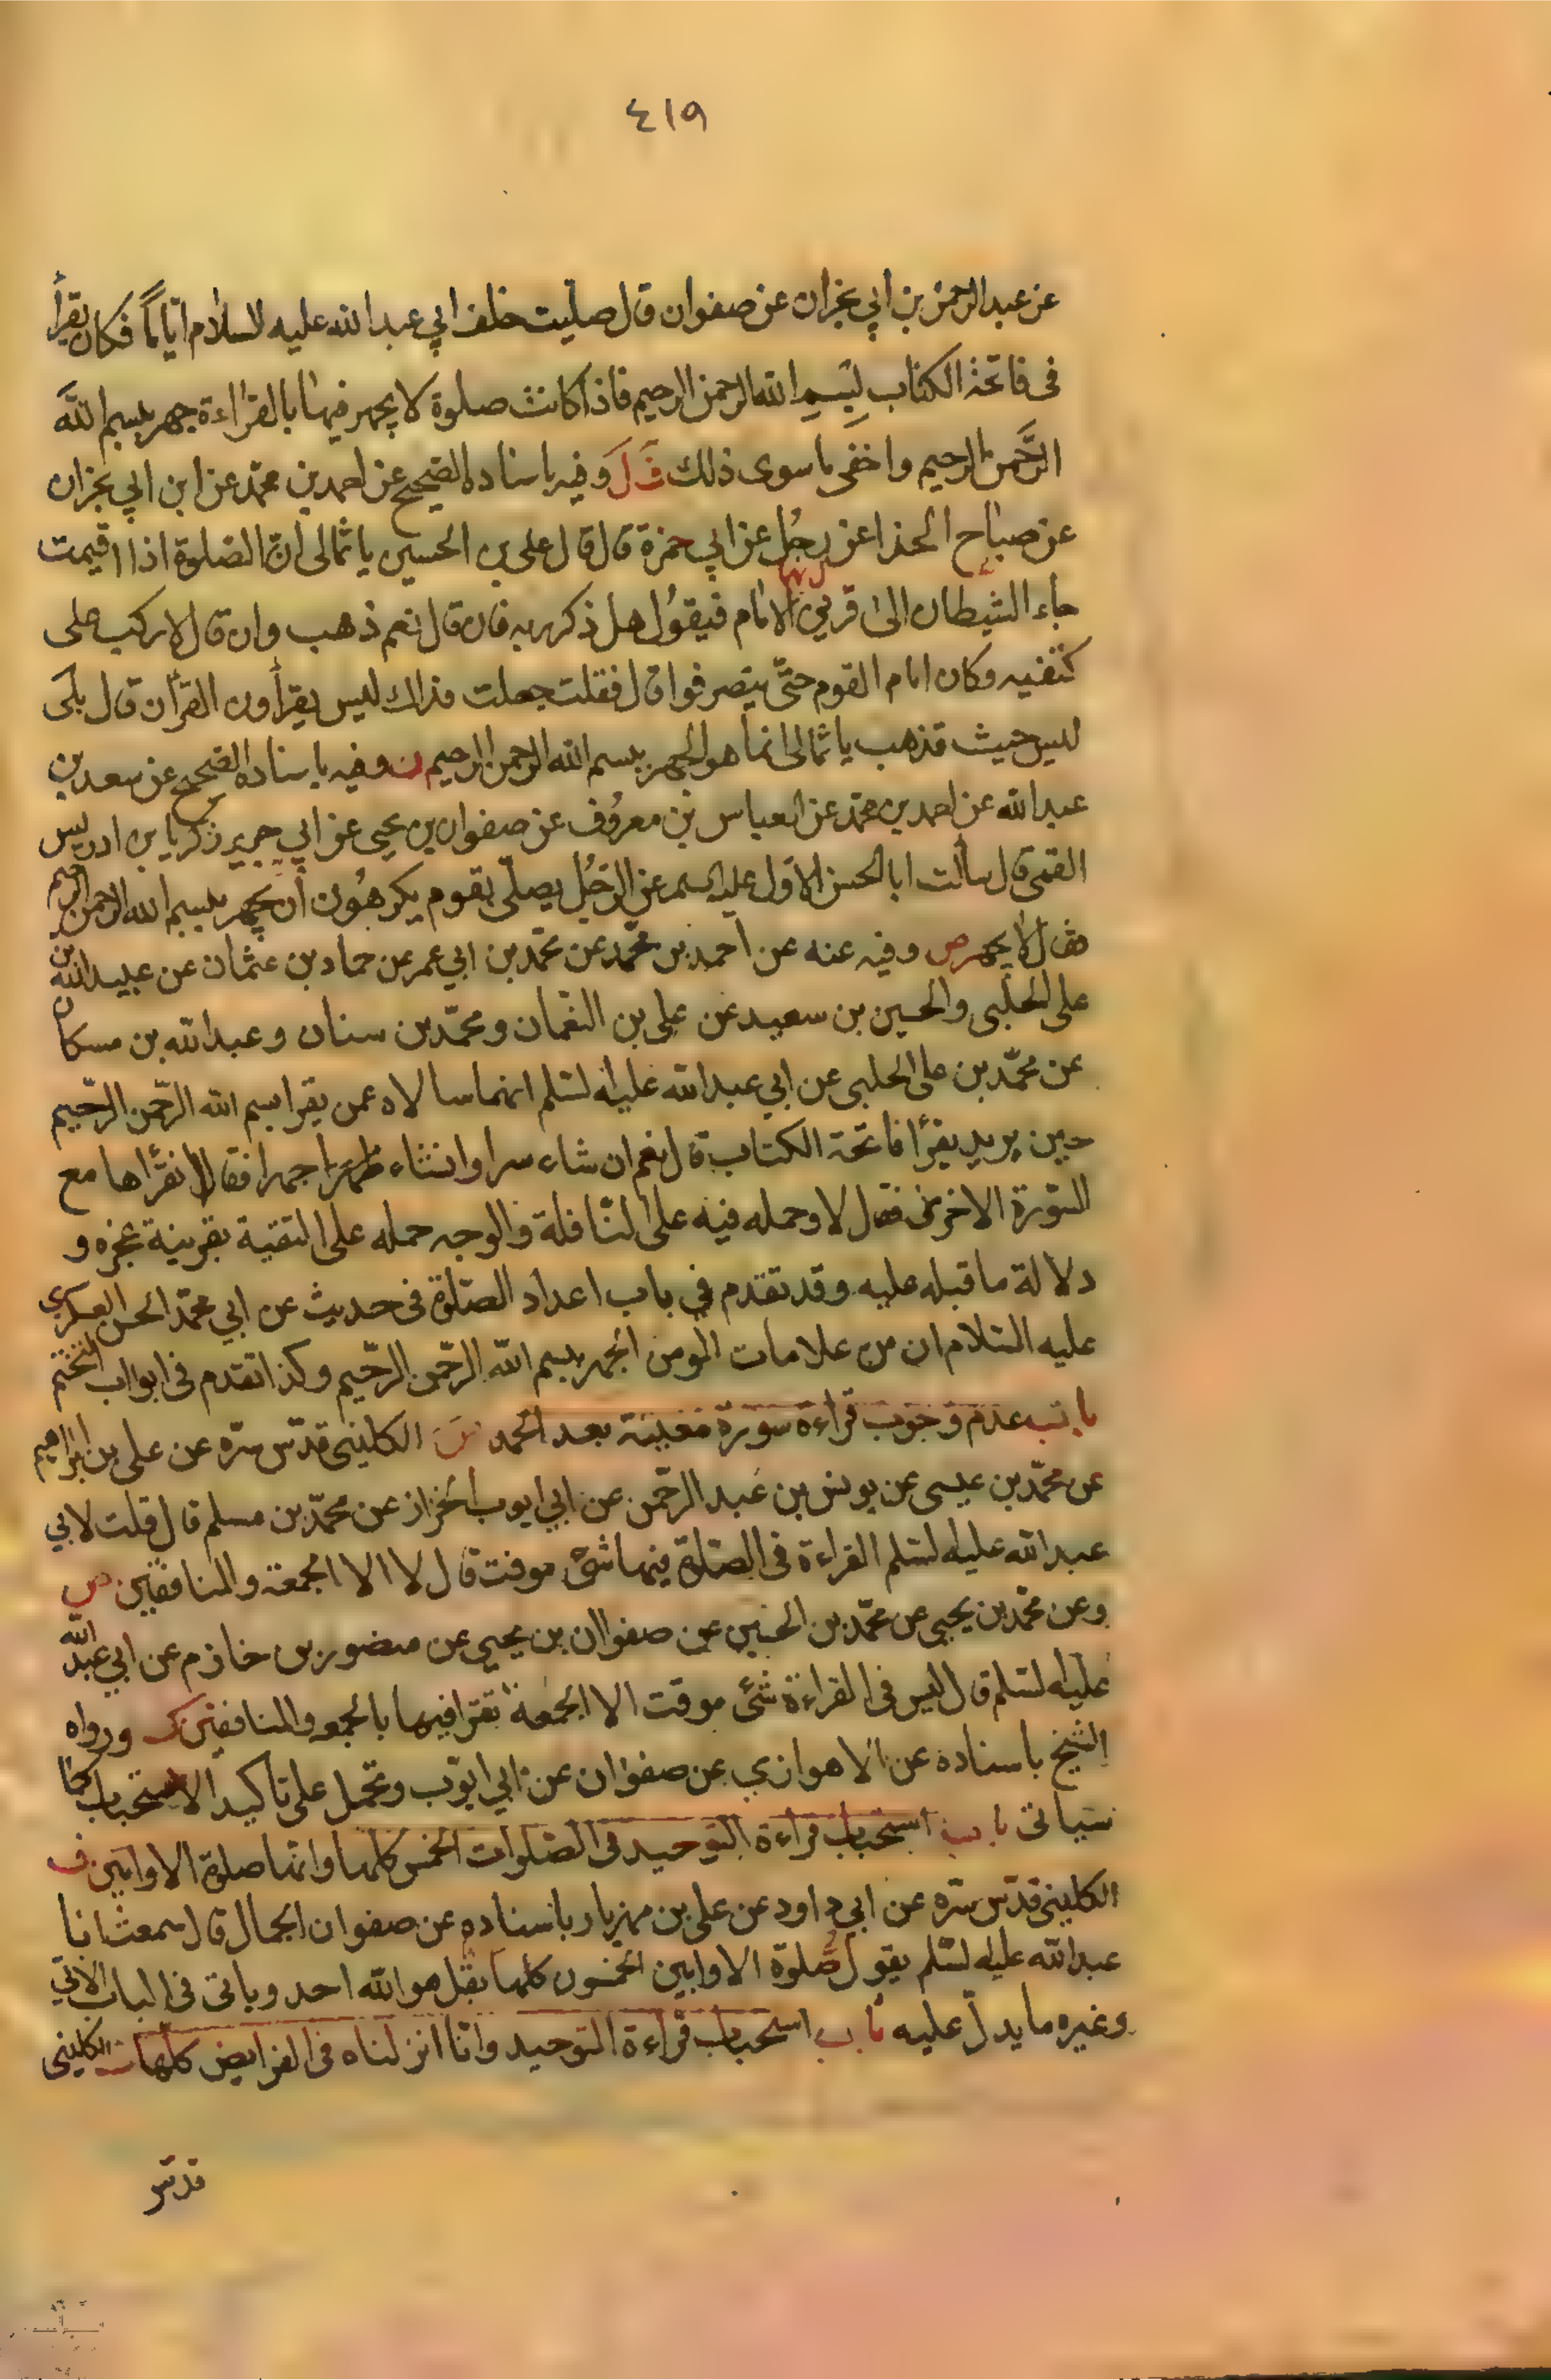 ٤١٩
عن عبد الرحمن بن ابي نجران عن صفوان قال صليت خلف ابي عبد الله عليه السلام اياماً فكان يقرأ
فى فاتحة الكتاب ببسم الله الرحمن الرحيم فاذا كانت صلوة لا يجهر فيها بالقراءة جهر ببسم الله
الرَّحمن الرحيم واخفى ما سوى ذلك وفيه باسناده الصحيح عن احمد بن محمد عن ابن ابي نجران
عن صباح الحذا عن رجُل عن ابي حمزة قال قال على بن الحسين يا ثمالى ان الصلوة اذا اقيمت
جاء الشيطان الى قرين الامام فيقول هل ذكر ربه فان قال نعم ذهب وان قال لا ركب على
كتفيه وكان امام القوم حتّى ينصرفوا قال فقلت جعلت فداك ليس يقرأون القرآن قال بلى
ليس حيث تذهب يا ثمالى انما هو الجهر ببسم الله الرحمن الرحيم وفيه باسناده الصحيح عن سعد بن
عبد الله عن احمد بن محمد عن العباس بن معروف عن صفوان بن يحيى عن ابي جرير زكريا بن ادريس
القمى قال سألت ابا الحسن الاول عليه السلم عن الرجُل يصلّى بقوم يكرهُون أن يجهر ببسم الله الرحمن الرحيم
فقال لا يجهر ص وفيه عنه عن احمد بن محمد عن محمد بن ابي عمر عن حماد بن عثمان عن عبيد الله بن
على الحلبى والحسين بن سعيد عن على بن النعمان ومحمّد بن سنان وعبد الله بن مسكان
عن محمّد بن على الحلبى عن ابي عبد الله عليه لسلم انهما سالاه عمن يقرا بسم الله الرّحمن الرّحيم
حين يريد يقرأ فاتحة الكتاب قال نعم ان شاء سرا وانشاء جهرا فقالا افنقرأها مع
السّورة الاخرى فقال لا وحمله فيه على النافلة والوجه حمله على التقية بقرينة عجزه و
دلالة ما قبله عليه وقد تقدم في باب اعداد الصّلوة فى حديث عن ابي محمّد الحسن العسكرى
عليه السّلام ان من علامات المومن الجهر ببسم الله الرّحمن الرّحيم وكذا تقدم فى ابواب التختم
باب عدم وجوب قراءة سورة معينة بعد الحمد الكلينى قدّس سّره عن على بن ابراهيم
عن محمّد بن عيسى عن يونس بن عبد الرّحمن عن ابي ايوب الخزاز عن محمّد بن مسلم قال قلت لابي
عبد الله عليه لسلم القراءة فى الصّلوة فيها شئ موقت قال لا الا الجمعة والمنافقين ص
وعن محمّد بن يحيى عن محمّد بن الحسين عن صفوان بن يحيى عن منصور بن حازم عن ابي عبد الله
عليه لسلم قال ليس فى القراءة شئ موقت الا الجمعة تقرا فيها بالجمعه والمنافقين ورواه
الشيخ باسناده عن الاهوازي عن صفوان عن ابي ايوب وتحمل على تاكيد الاستحباب كما
سياتى باب استحباب قراءة التوحيد فى الصّلوات الخمس كلها وانها صلوة الاوابين
الكلينى قدّس سّره عن ابي داود عن على بن مهزيار باسناده عن صفوان الجمال قال سمعت ابا
عبد الله عليه لسلم يقول صلوة الاوابين الخمسون كلها بقل هو الله احد وياتى فى الباب الاتي
وغيره ما يدل عليه باب استحباب قراءة التوحيد وانا انزلناه فى الفرايض كلها الكلينى
قدّس